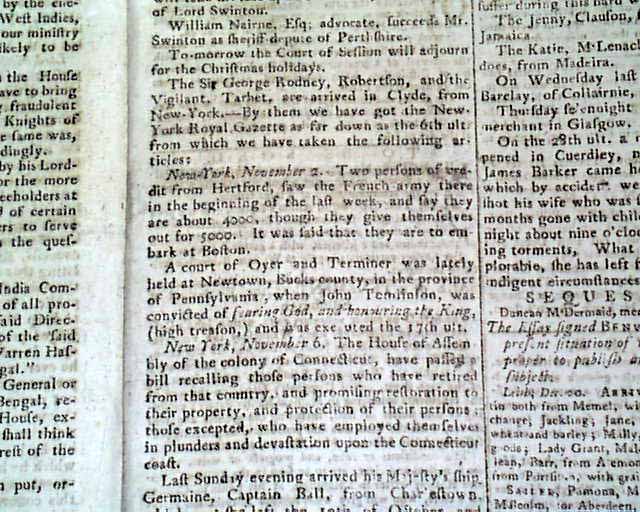 by the ene-
West Indies,
our ministry
ikely to be
n the House
ave to bring
g fraudulent
Knights of
e same was,
dingly.
by his Lord-
or the more
eeholders at
d of certain
ers to serve
n the ques-
India Com-
of all pro-
said Direc-
of the said
Warren Has-
gal."
General or
Bengal, re-
House, ex-
shall think
rest of the
n put, or-
of Lord Swinton.
William Nairne, Esq; advocate, succeeds Mr.
Swinton as sheriff-depute of Perthshire.
To-morrow the Court of Session will adjourn
for the Christmas holidays.
The Sir George Rodney, Robertson, and the
Vigilant, Tarbet, are arrived in Clyde, from
New-York.—By them we have got the New-
York Royal Gazette as far down as the 6th ult.
from which we have taken the following ar-
ticles:
New-York, November 2. Two persons of cre-
dit from Hertford, saw the French army there
in the beginning of the last week, and say they
are about 4000, though they give themselves
out for 5000. It was said that they are to em-
bark at Boston.
A court of Oyer and Terminer was lately
held at Newtown, Bucks county, in the province
of Pennsylvania, when John Tomlinson, was
convicted of fearing God, and honouring the King,
(high treason,) and was executed the 17th ult.
New York, November 6. The House of Assem-
bly of the colony of Connecticut, have passed a
bill recalling those persons who have retired
from that country, and promising restoration to
their property, and protection of their persons;
those excepted, who have employed themselves
in plunders and devastation upon the Connecticut
coast.
Last Sunday evening arrived his Majesty's ship
Germaine, Captain Ball, from Charlestown,
which she left the 19th of October, and
suffer during this hard w
The Jenny, Clauson,
Jamaica.
The Katie, M'Lenac
does, from Madeira.
On Wednesday last
Barclay, of Collairnie,
Thursday se'ennight
merchant in Glasgow.
On the 28th ult. a
pened in Cuerdley,
James Barker came h
which by accident we
shot his wife who was
months gone with chil
night about nine o'clo
ing torments, What
plorable, she has left
indigent circumstances
SEQUES
Duncan M'Dermaid, me
The Essay signed BENV
present situation of
proper to publish
subject.
Leith, Dec. 20. ARRIV
tin both from Memel, wit
change; Jackling; Jane,
wheat and barley; Mally
goods; Lady Grant, Mal
Jean, Barr, from
from
SAILED, Pomona, M
Malcolm, for Aberdeen,